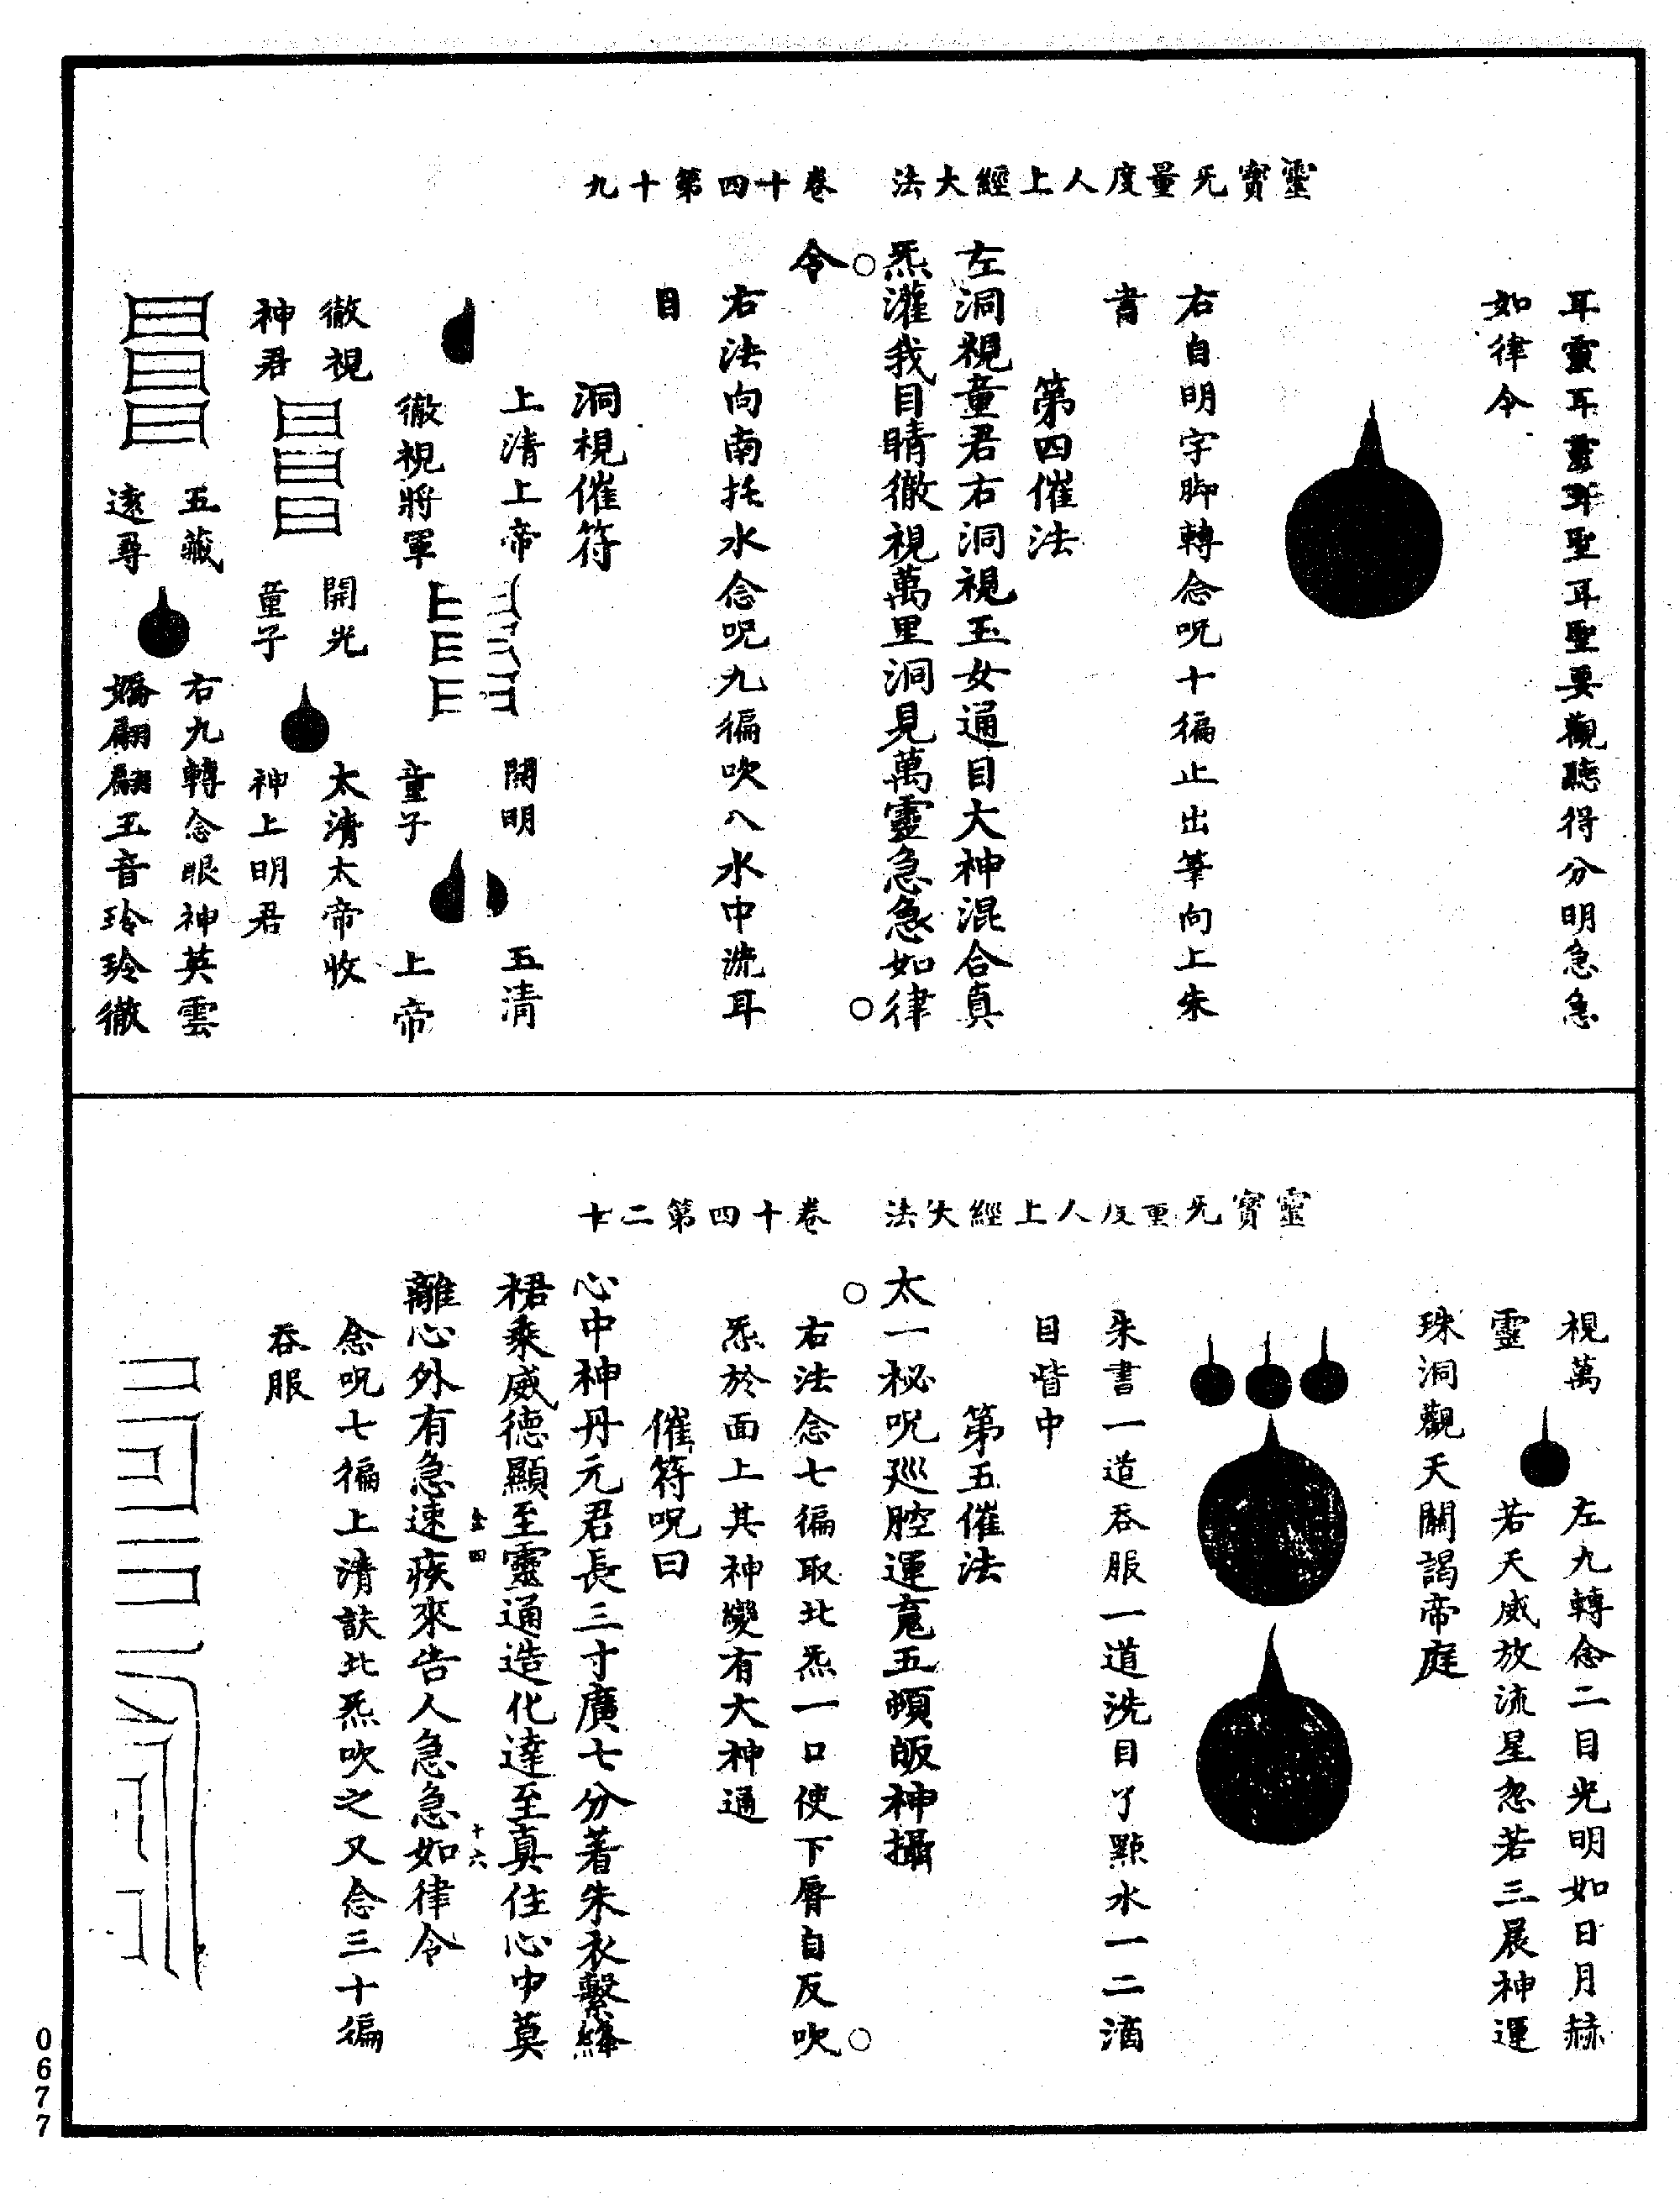 靈寳旡量度人上經大法　卷十四第十九
耳靈耳靈耳聖耳聖要觀聽得分明急急
如律令
右自明字脚轉念呪十徧止出筆向上朱
書
第四催法
左洞視童君右洞視玉女通目大神混合真
炁灌我目睛徹視萬里洞見萬靈急急如律
令
右法向南托水念呪九徧吹入水中洗耳
目
洞視催符
上清上帝　開明　五清
徹視將軍　童子　上帝
徹視　開光　太清太帝收
神君　童子　神上明君
五藏　右九轉念眼神英雲
遠尋　嬌翩翩玉音玲玲徹
靈寳旡量度人上經大法　卷十四第二十
視萬　左九轉念二目光明如日月赫
靈　若天威放流星忽若三晨神運
珠洞觀天關謁帝庭
朱書一道吞服一道洗目了點水一二滴
目眥中
第五催法
太一祕呪廵腔運䰟五頓皈神攝
右法念七徧取北炁一口使下脣自反吹
炁於面上其神變有大神通
催符呪曰
心中神丹元君長三寸廣七分著朱衣繫絳
裙乘威德顯至靈通造化達至真住心中莫
離心外有急速疾來告人急急如律令
念呪七徧上清訣北炁吹之又念三十徧
吞服
十六
0677